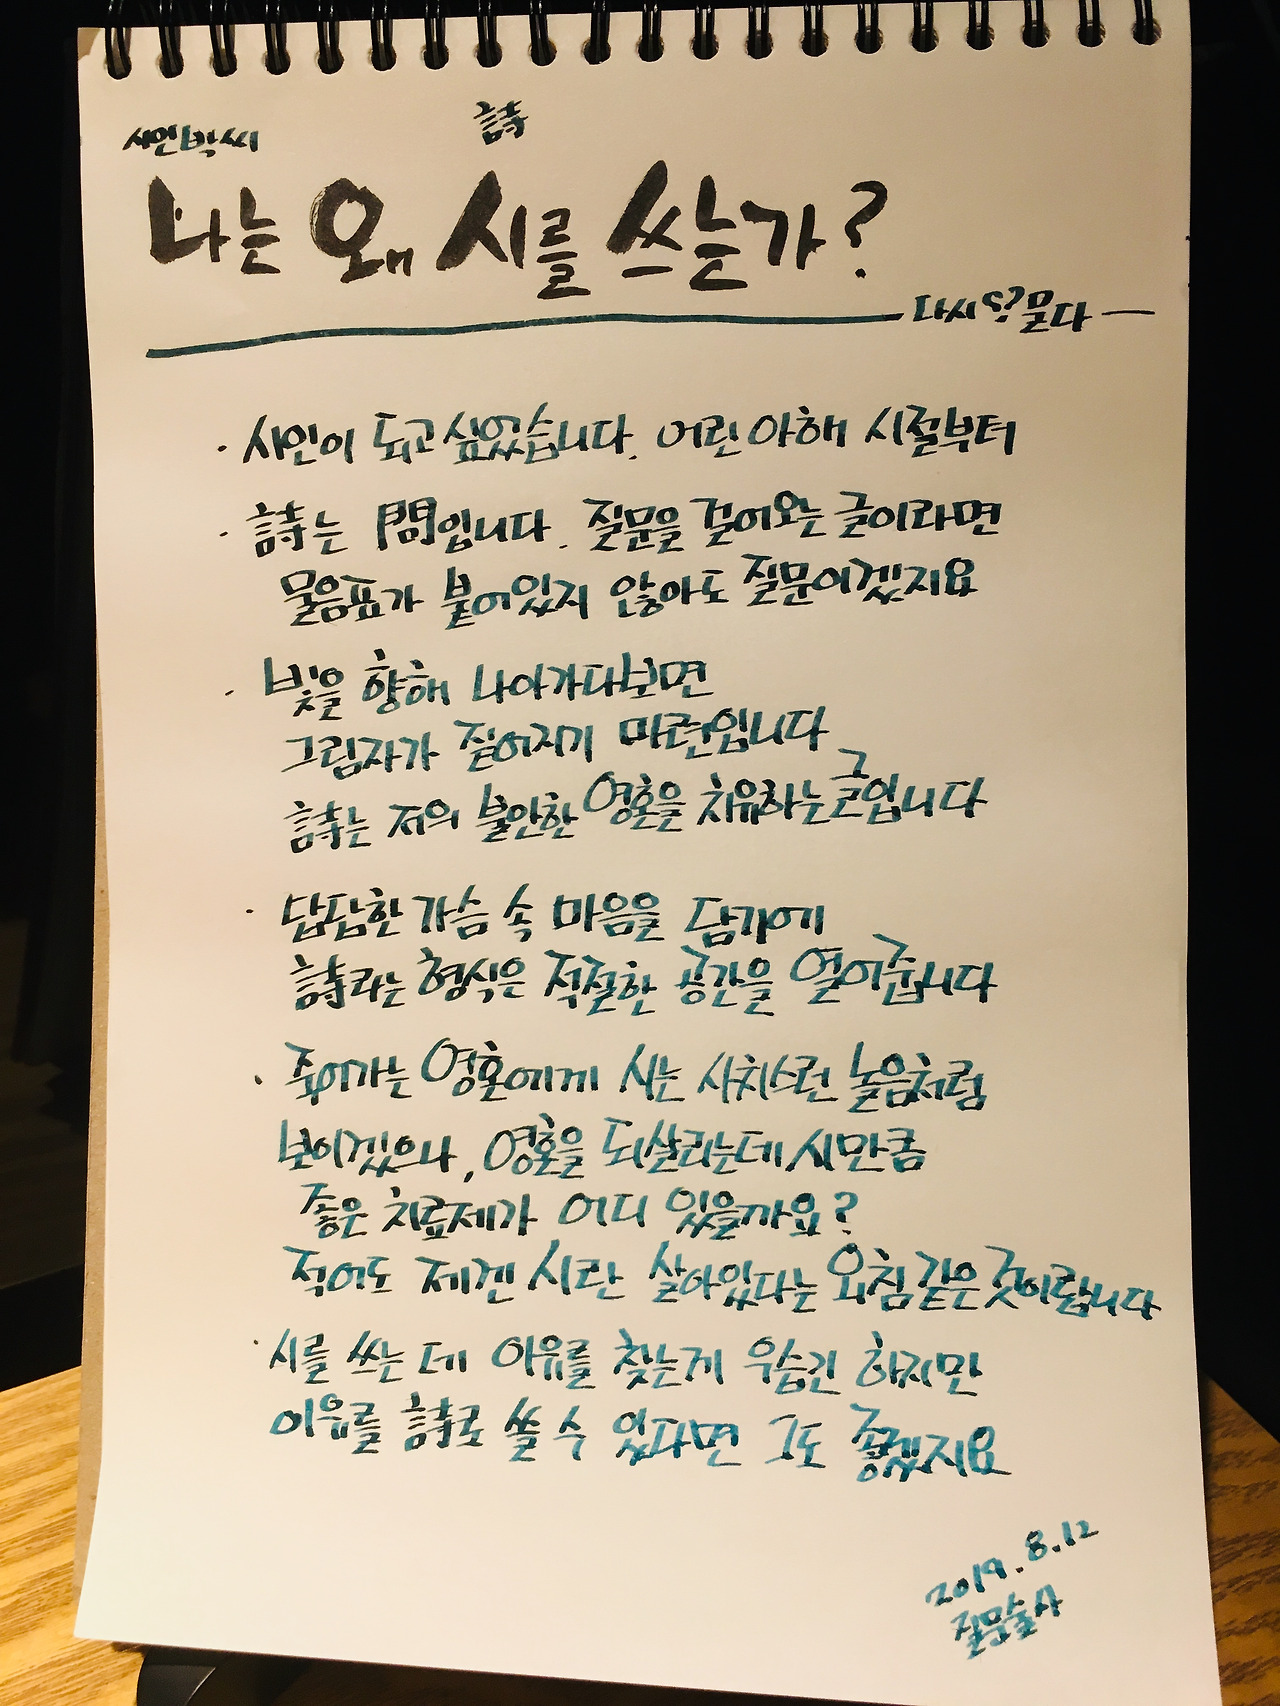 시인박씨
詩
나는 왜 시를 쓰는가?
다시 묻다
· 시인이 되고 싶었습니다. 어린 아해 시절부터
· 詩는 問입니다. 질문을 걸어오는 글이라면
물음표가 붙어있지 않아도 질문이겠지요
· 빛을 향해 나아가다보면
그림자가 짙어지기 마련입니다
詩는 저의 불안한 영혼을 치유하는 글입니다
· 답답한 가슴 속 마음을 담기에
詩라는 형식은 적절한 공간을 열어줍니다
· 죽어가는 영혼에게 시는 사치스런 놀음처럼
보이겠으나, 영혼을 되살리는데 시만큼
좋은 치료제가 어디 있을까요?
적어도 제겐 시란 살아있다는 외침 같은 것이랍니다
· 시를 쓰는 데 이유를 찾는게 우습긴 하지만
이유를 詩로 쓸 수 있다면 그도 좋겠지요
2019.8.12
질문술사